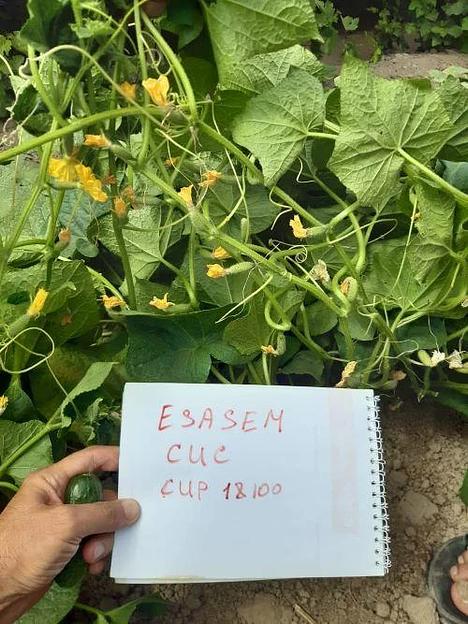 ESASEM
CUC
CUP 18100